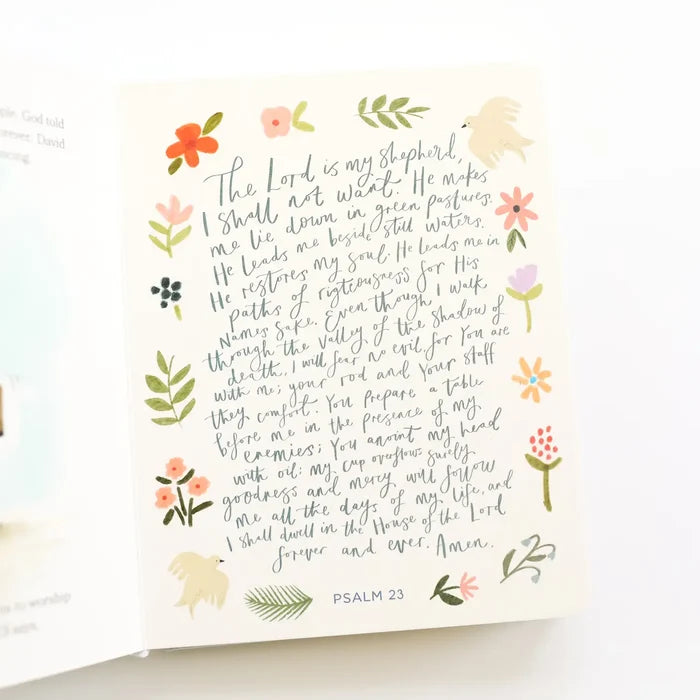 ple. God told
orever. David
The Lord is my shepherd,
I shall not want. He makes
me lie down in green pastures.
He leads me beside still waters.
He restores my soul. He leads me in
paths of righteousness for His
Names sake. Even though I walk
through the valley of the shadow of
death, I will fear no evil, for You are
with me; your rod and Your staff
they comfort. You prepare a table
before me in the presence of my
enemies; You anoint my head
with oil; my cup overflows. Surely
goodness and mercy will follow
me all the days of my life, and
I shall dwell in the House of the Lord
forever and ever. Amen.
PSALM 23
to worship
says.